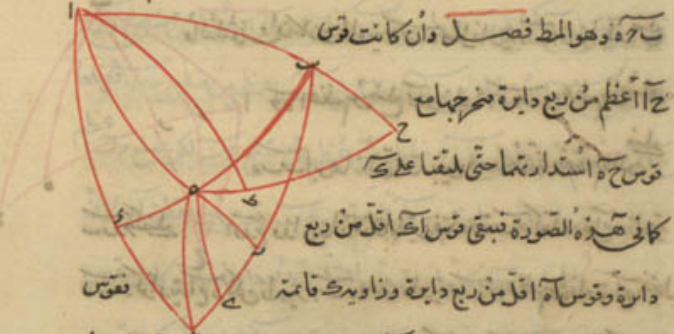 ب ح ه وهو المط فصل وان كانت قوس
ح ا اعظم من ربع دايرة فنخرجها مع
قوس ح ه استدارتهما حتى يلتقيا على ك
كما فى هذه الصورة فيبقى قوس اك اقل من ربع
دايرة وقوس اه اقل من ربع دايرة وزاوية ك قائمة فقوس
ا
ب
ح
ه
ط